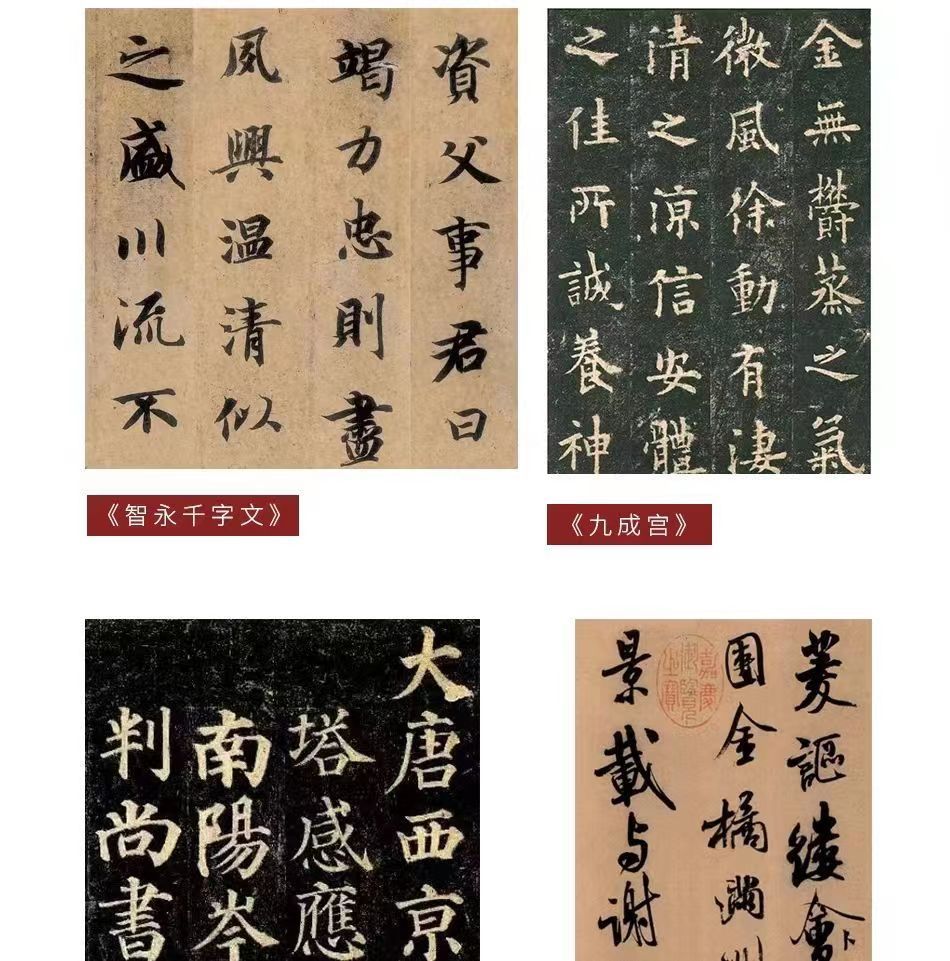 資父事君曰
竭力忠則盡
夙興温清似
之盛川流不
《智永千字文》
金無欝蒸之氣
微風徐動有淒
清之涼信安體
之佳所誠養神
《九成宫》
大唐西京
塔感應
南陽岑
判尚書
菱謳縷會
團金橘滿洲
景載与谢
嘉慶
御覽
之寶